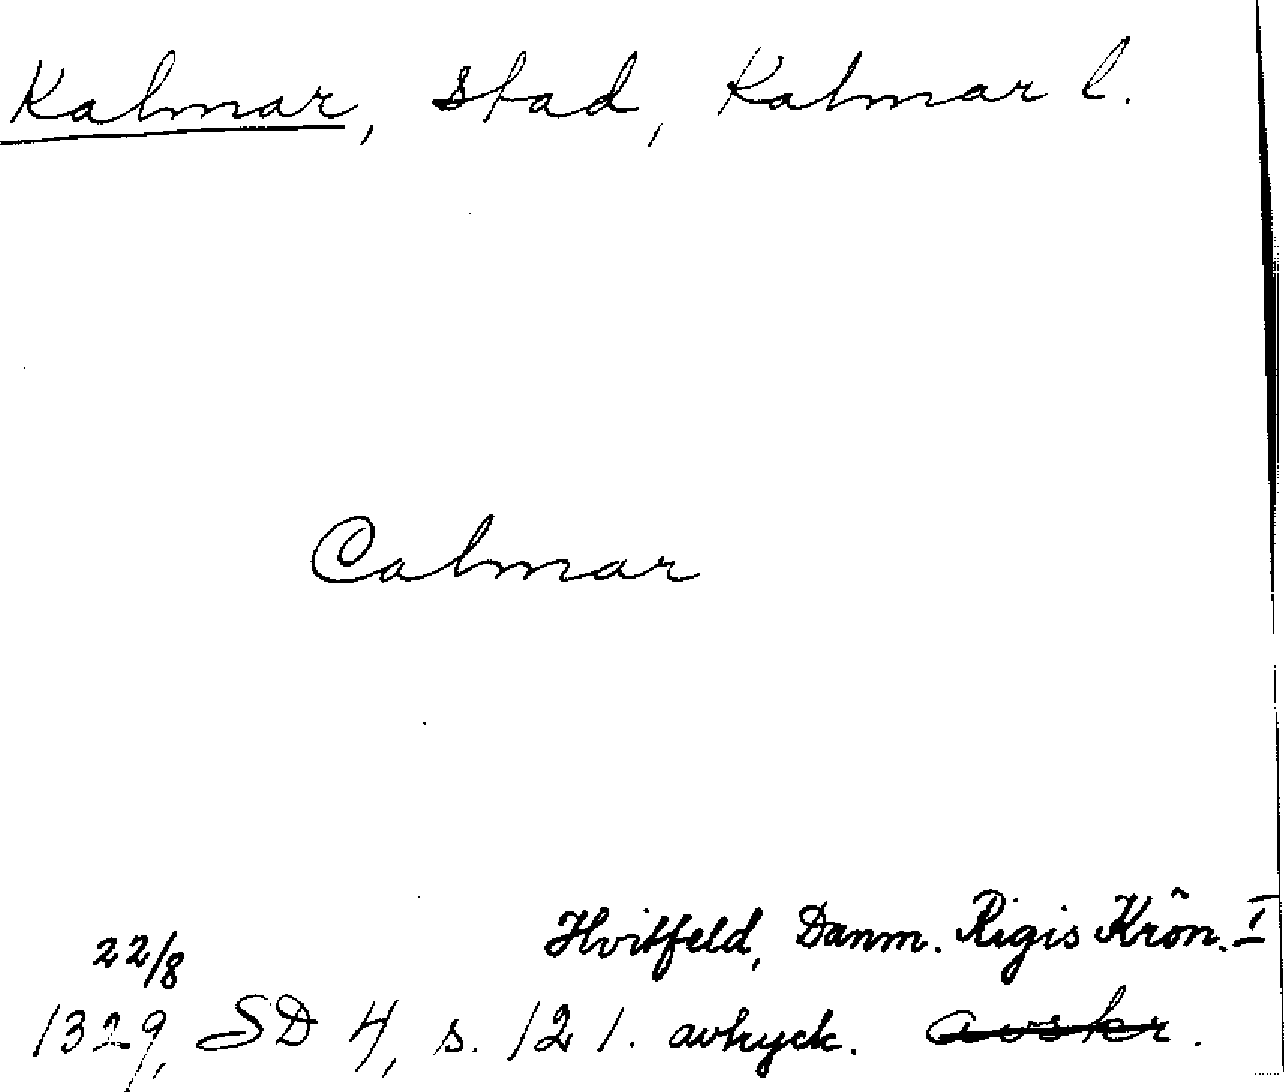 Kalmar, stad, Kalmar l.
Calmar
22/8 Hvitfeld, Danm. Rigis Krön. I
1329, SD 4, s. 121. avtryck. avskr.